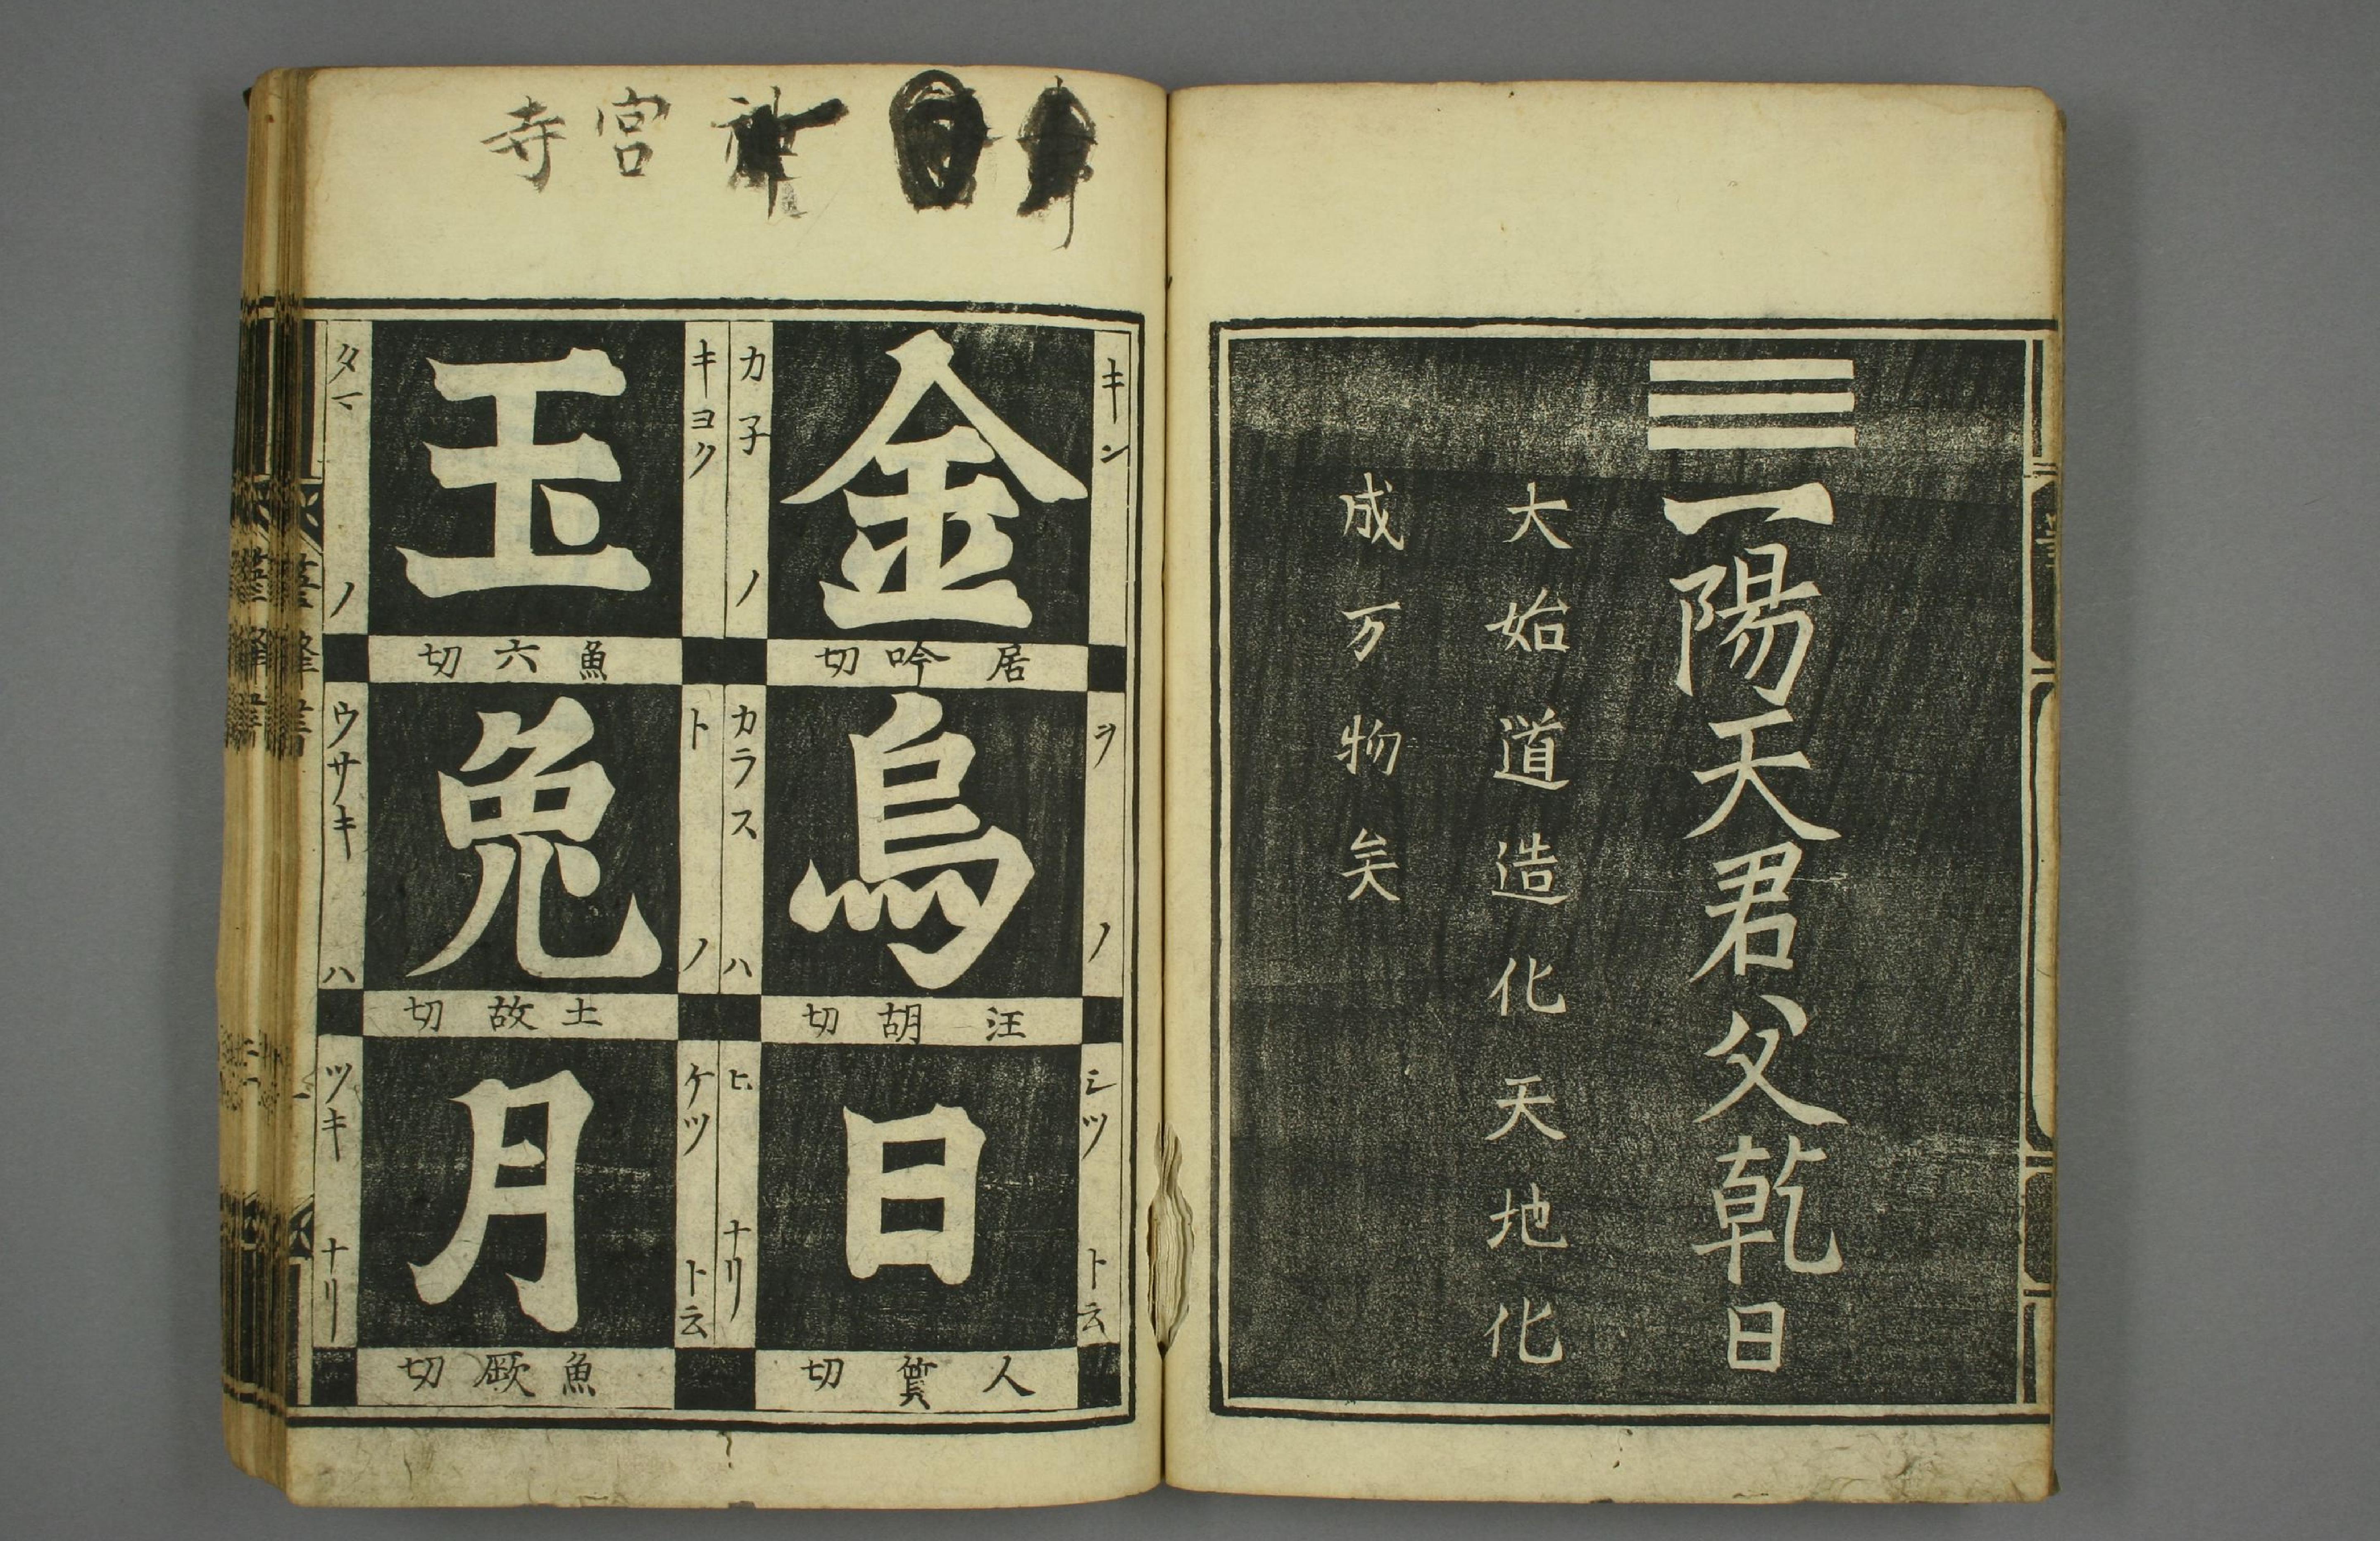 ☰一陽天君父乾日
大始道造化天地化
成万物矣
神宮寺
キン ヲノ シツト云
金烏日
居吟切
汪胡切
人質切
カ子ノ カラスハ ヒナリ
キヨク トノ ケツト云
玉兎月
魚六切
土故切
魚厥切
タマノ ウサキハ ツキナリ